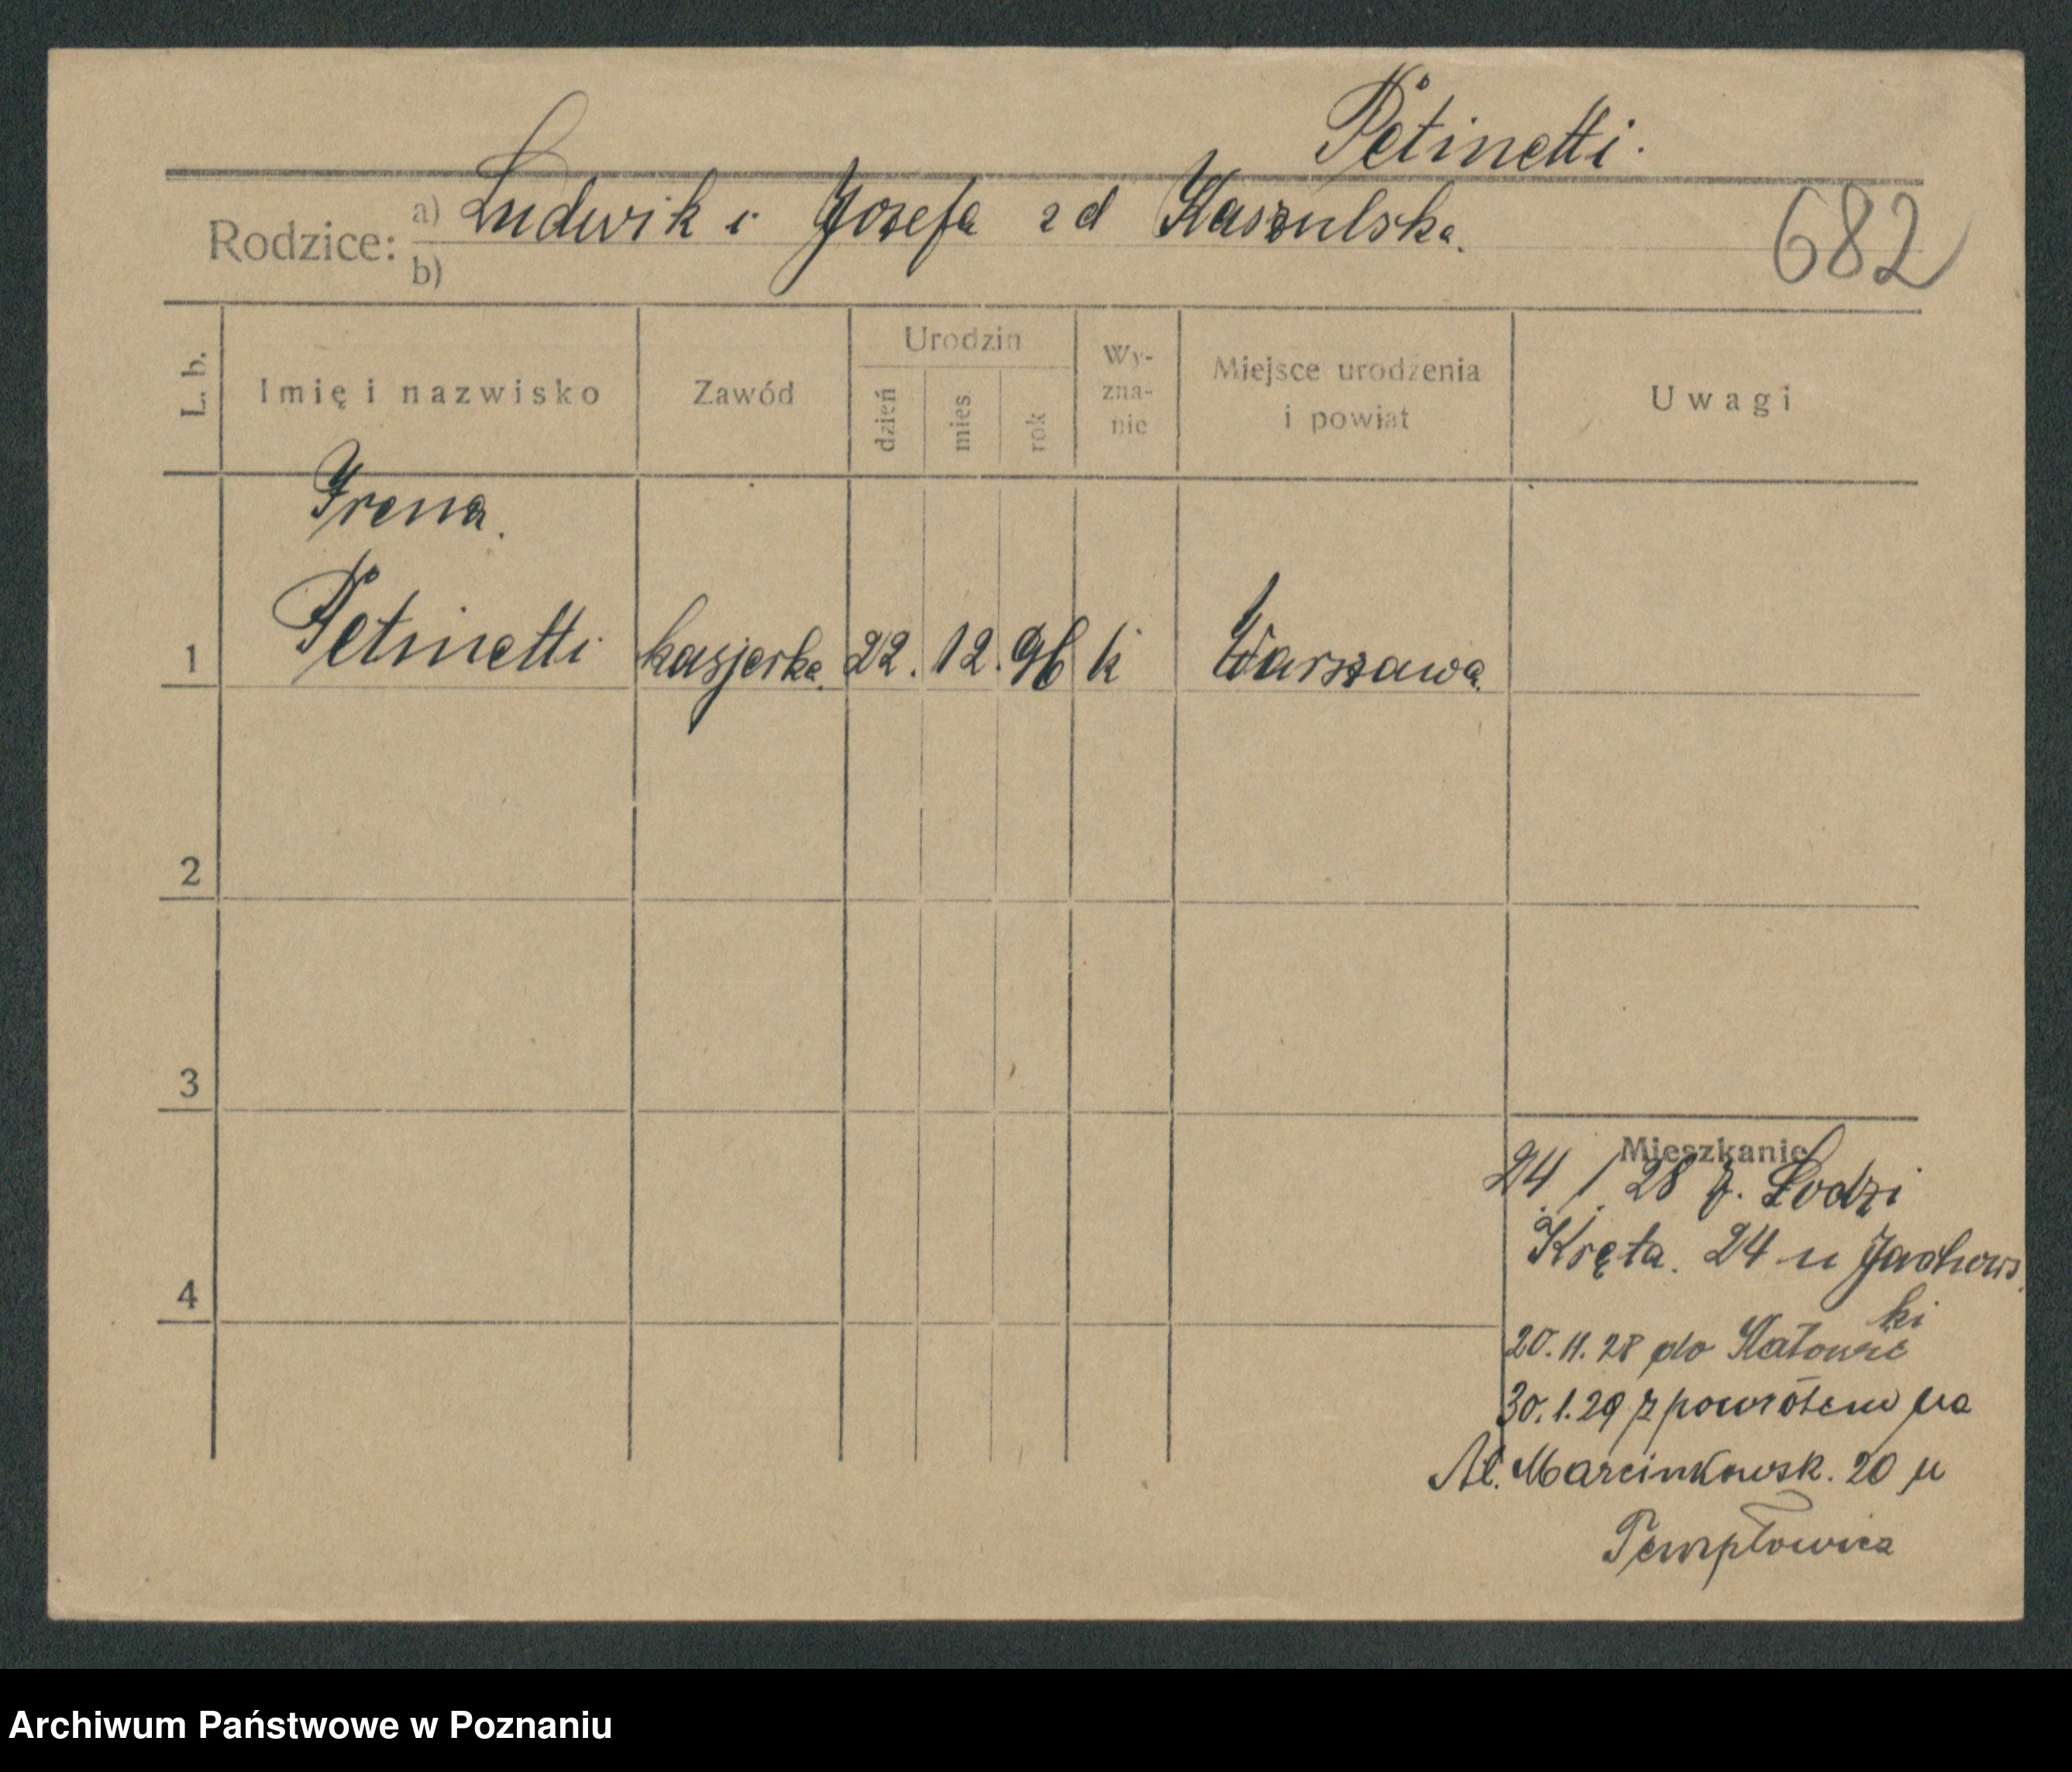 Petinetti.
Rodzice: a) Ludwik i Jozefa zd Kaszulska.
b)
682
L. b.
Imię i nazwisko
Zawód
Urodzin
dzień
mies.
rok
Wy-
zna-
nie
Miejsce urodzenia
i powiat
Uwagi
Irena.
1 Petinetti kasjerka. 22. 12. 96 k Warszawa.
2
3
Mieszkanie
24 / 28 z. Łodzi
Kręta. 24 u Jachows
ki
4
20.11.28 do Katowic
30.1.29 z powrotem na
Al. Marcinkowsk. 20 u
Archiwum Państwowe w Poznaniu